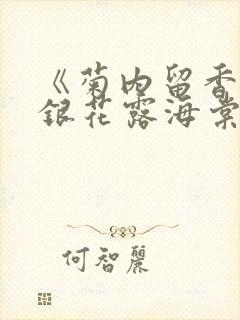 《菊内留香
銀花露海棠
何智麗